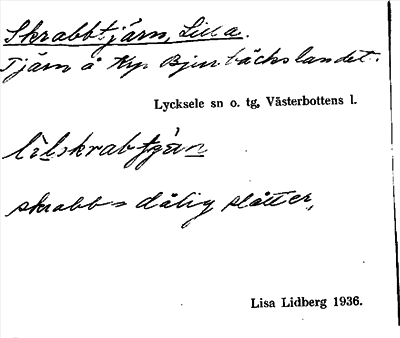 Skrabbtjärn, Lilla.
Tjärn å Krp. Bjurbäckslandet.
Lycksele sn o. tg, Västerbottens l.
lìlskrabtjän
skrabb = dålig slåtter,
Lisa Lidberg 1936.